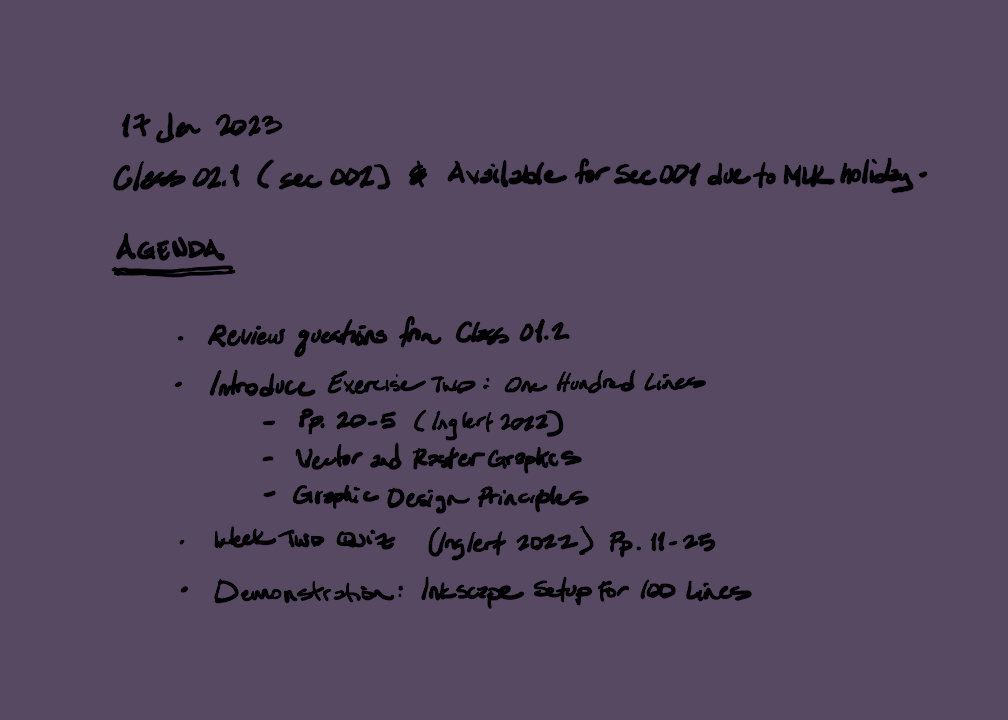 17 Jan 2023
Class 02.1 (sec 002) & Available for Sec 001 due to MLK holiday.
AGENDA
· Review questions from Class 01.2
· Introduce Exercise Two: One Hundred Lines
- Pp. 20-5 (Inglert 2022)
- Vector and Raster Graphics
- Graphic Design Principles
· Week Two Quiz (Inglert 2022) Pp. 11-25
· Demonstration: Inkscape Setup for 100 Lines